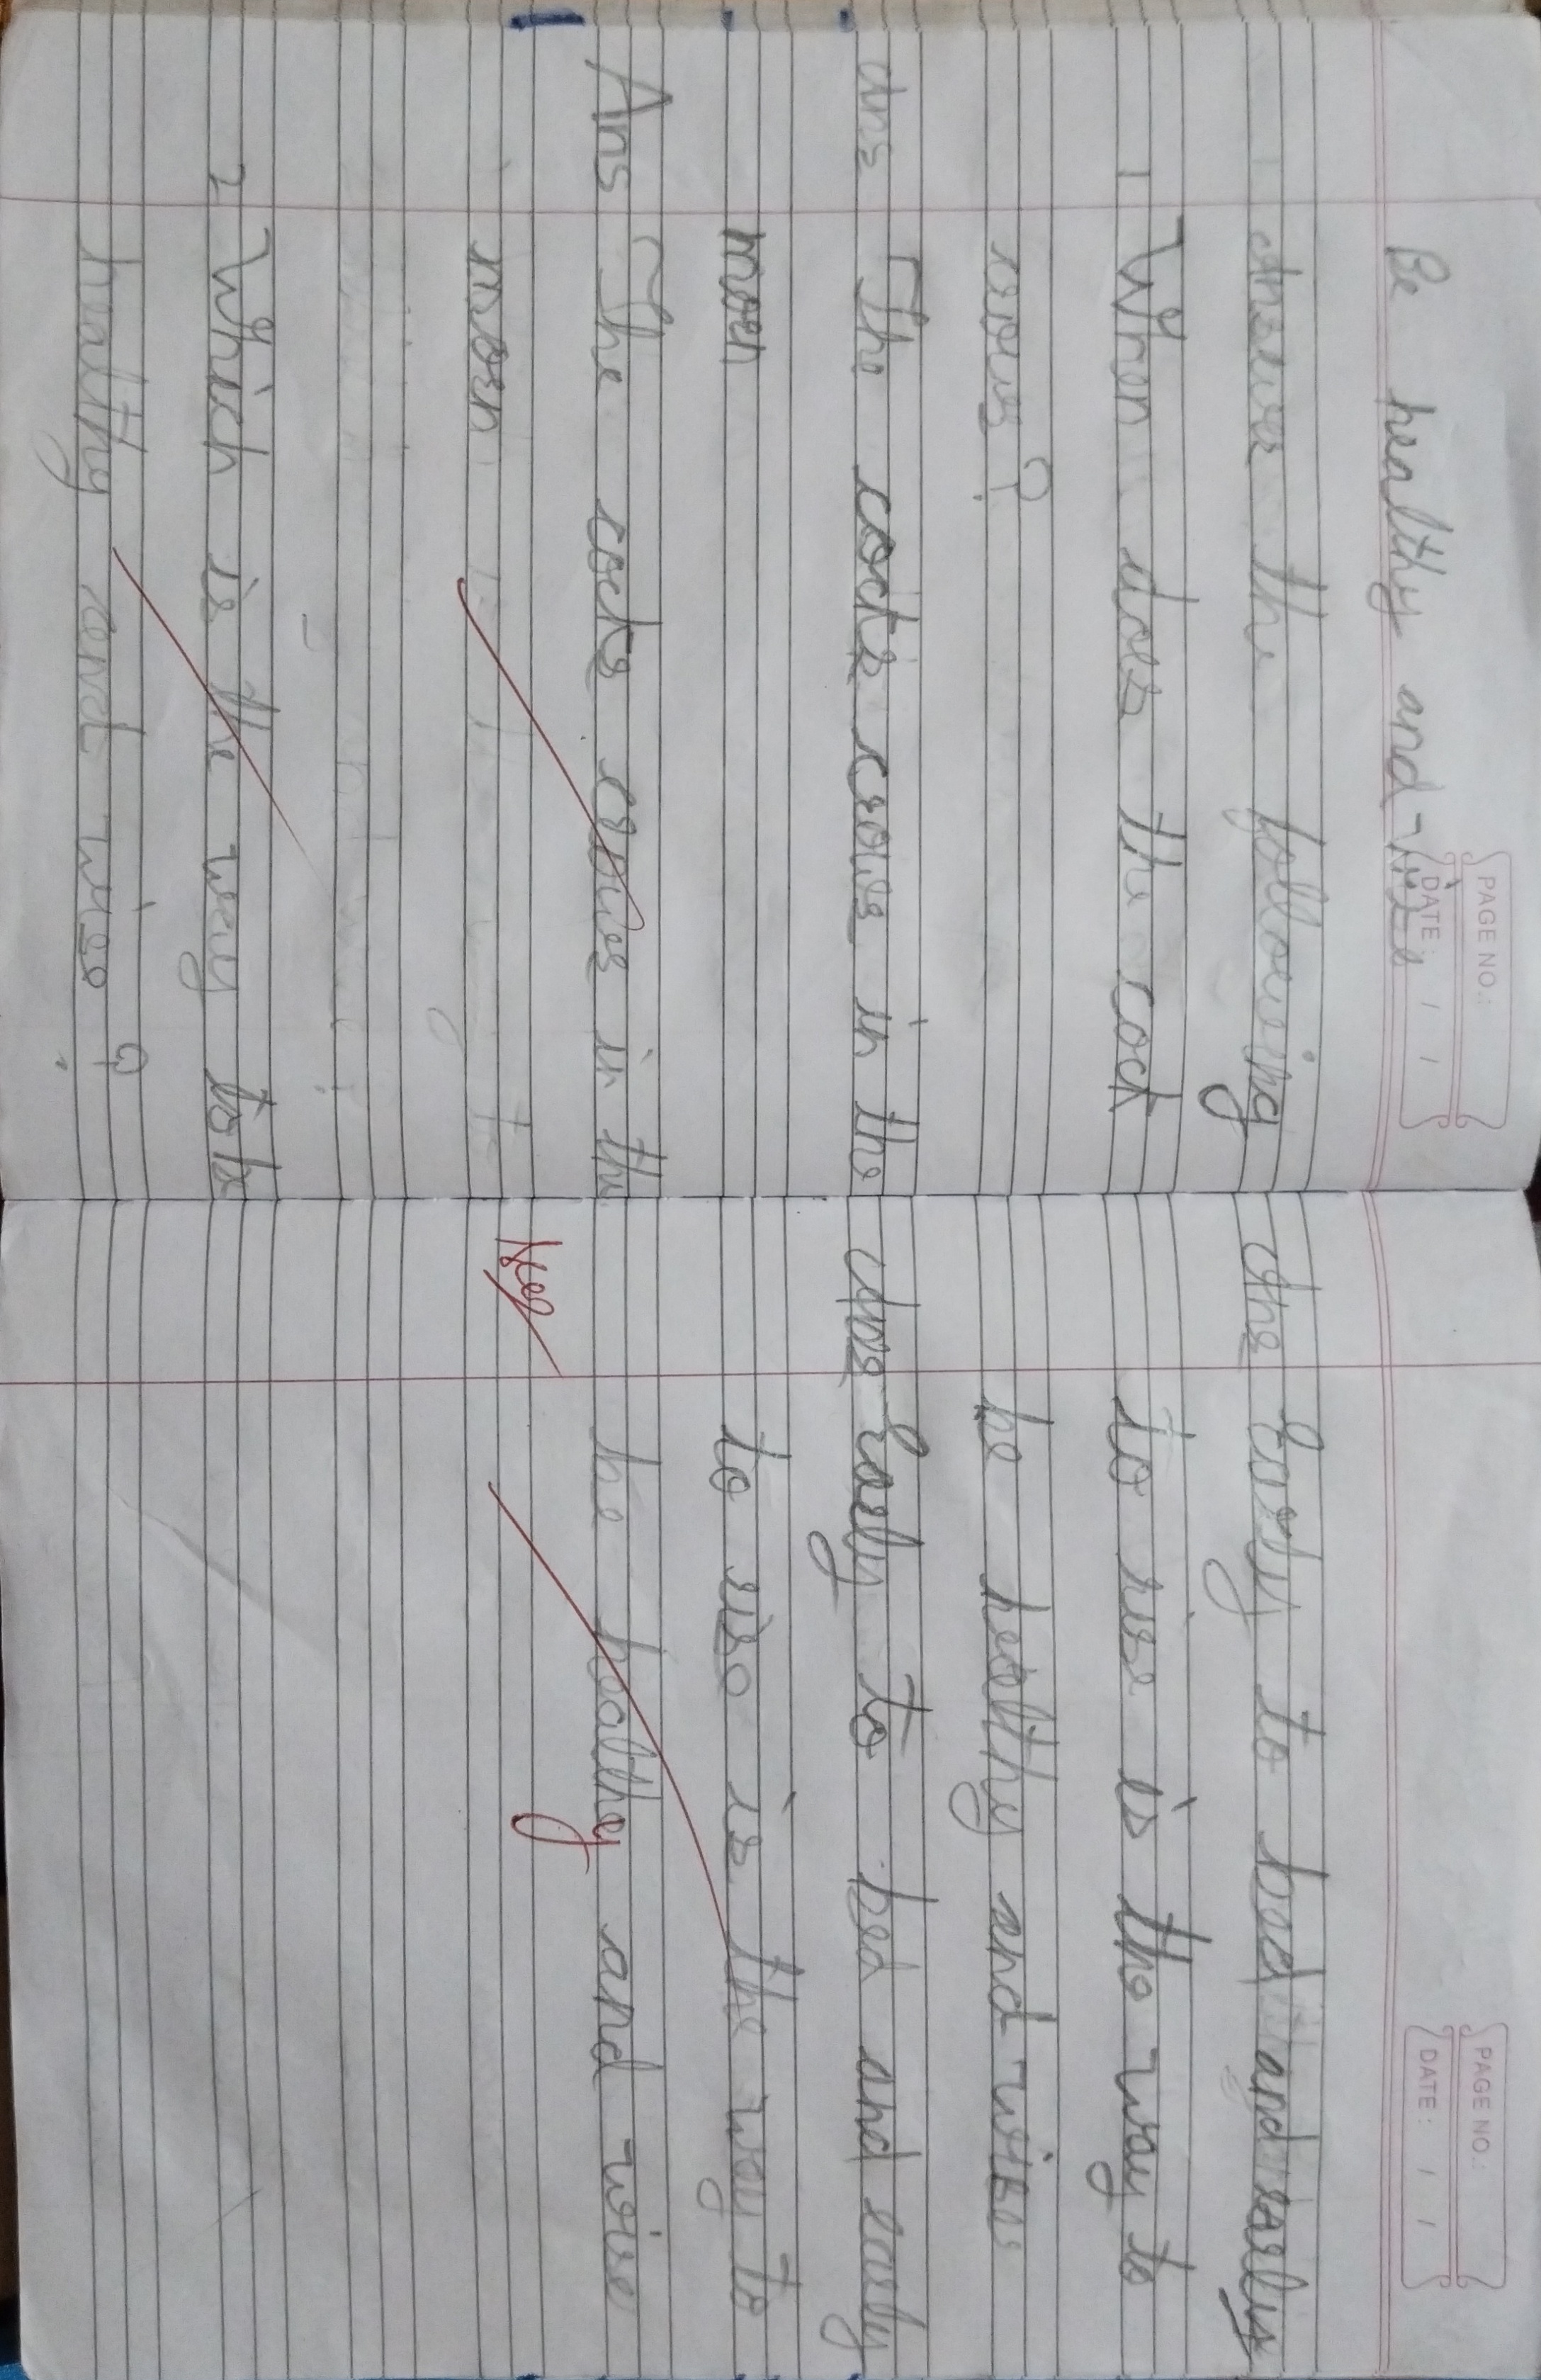 PAGE NO.:
DATE: / /
Be healthy and wise
Answer the following
1 When does the cock
crows?
Ans The cocks crows in the
morn
Ans The cocks crows in the
morn
2 Which is the way to be
healthy and wise?
PAGE NO.:
DATE: / /
Ans Early to bed and early
to rise is the way to
be healthy and wise
Ans Early to bed and early
to rise is the way to
he healthy and wise